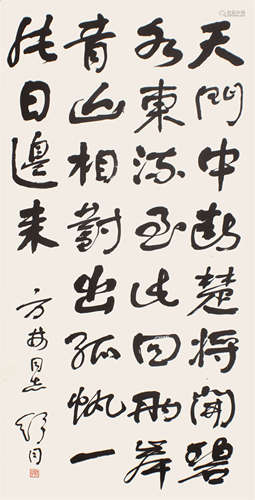 天門中断楚将開碧
水東流至此回兩岸
青山相對出孤帆一
片日邊来
方同志 舒同